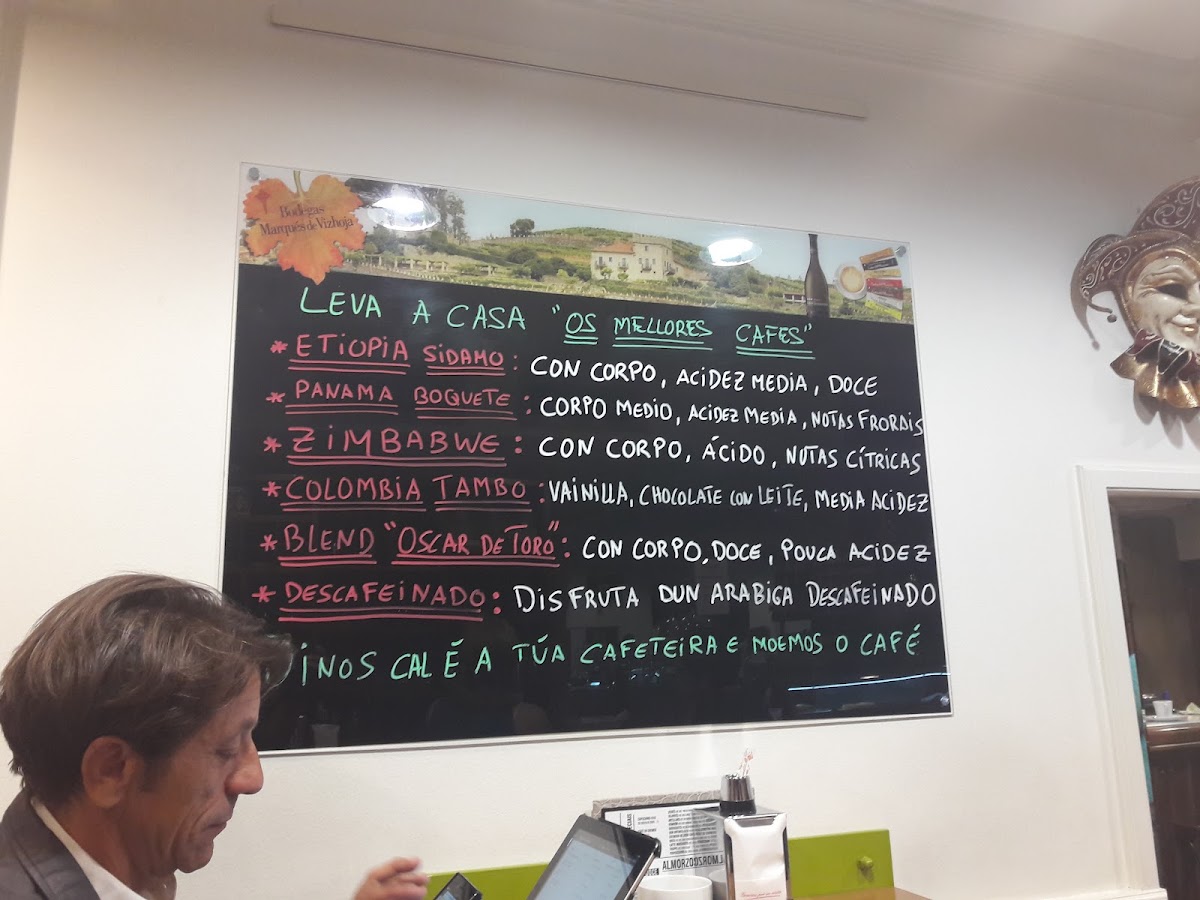 Bodegas
Marqués de Vizhoja
LEVA A CASA "OS MELLORES CAFES"
* ETIOPIA SIDAMO: CON CORPO, ACIDEZ MEDIA, DOCE
* PANAMA BOQUETE: CORPO MEDIO, ACIDEZ MEDIA, NOTAS FRORAIS
* ZIMBABWE: CON CORPO, ÁCIDO, NOTAS CÍTRICAS
* COLOMBIA TAMBO: VAINILLA, CHOCOLATE CON LEITE, MEDIA ACIDEZ
* BLEND "OSCAR DE TORO": CON CORPO, DOCE, POUCA ACIDEZ
* DESCAFEINADO: DISFRUTA DUN ARABIGA DESCAFEINADO
¡NOS CAL É A TÚA CAFETEIRA E MOEMOS O CAFÉ
ALMORZO